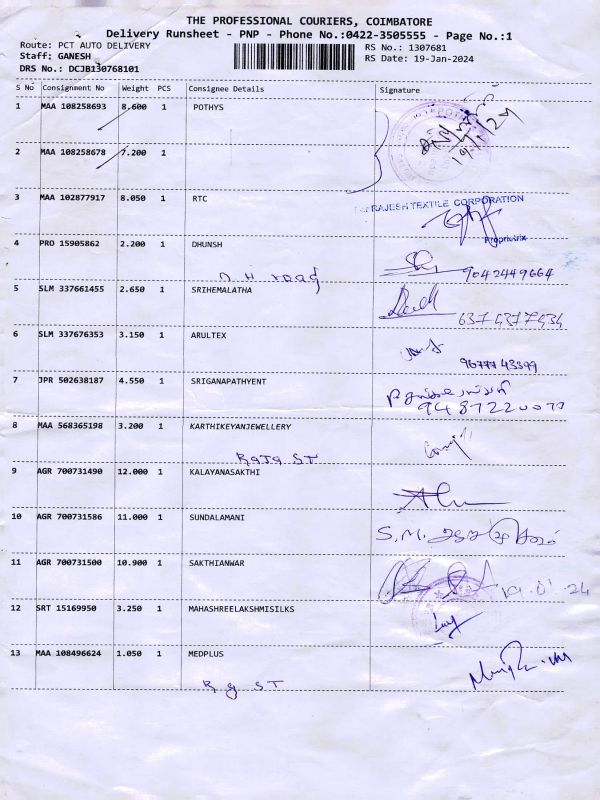 THE PROFESSIONAL COURIERS, COIMBATORE
Delivery Runsheet - PNP - Phone No.:0422-3505555 - Page No.:1
Route: PCT AUTO DELIVERY RS No.: 1307681
Staff: GANESH RS Date: 19-Jan-2024
DRS No.: DCJB130768101
S No Consignment No Weight PCS Consignee Details Signature
1 MAA 108258693 8.600 1 POTHYS
19/1/24
2 MAA 108258678 7.200 1
3 MAA 102877917 8.050 1 RTC
RAJESH TEXTILE CORPORATION
Proprietrix
4 PRO 15905862 2.200 1 DHUNSH
D.H road 9042449664
5 SLM 337661455 2.650 1 SRIHEMALATHA
6374377434
6 SLM 337676353 3.150 1 ARULTEX
9677743399
7 JPR 502638187 4.550 1 SRIGANAPATHYENT
9487220077
8 MAA 568365198 3.200 1 KARTHIKEYANJEWELLERY
Raja ST
9 AGR 700731490 12.000 1 KALAYANASAKTHI
10 AGR 700731586 11.000 1 SUNDALAMANI
S.M.
11 AGR 700731500 10.900 1 SAKTHIANWAR
19.01.24
12 SRT 15169950 3.250 1 MAHASHREELAKSHMISILKS
13 MAA 108496624 1.050 1 MEDPLUS
R g ST